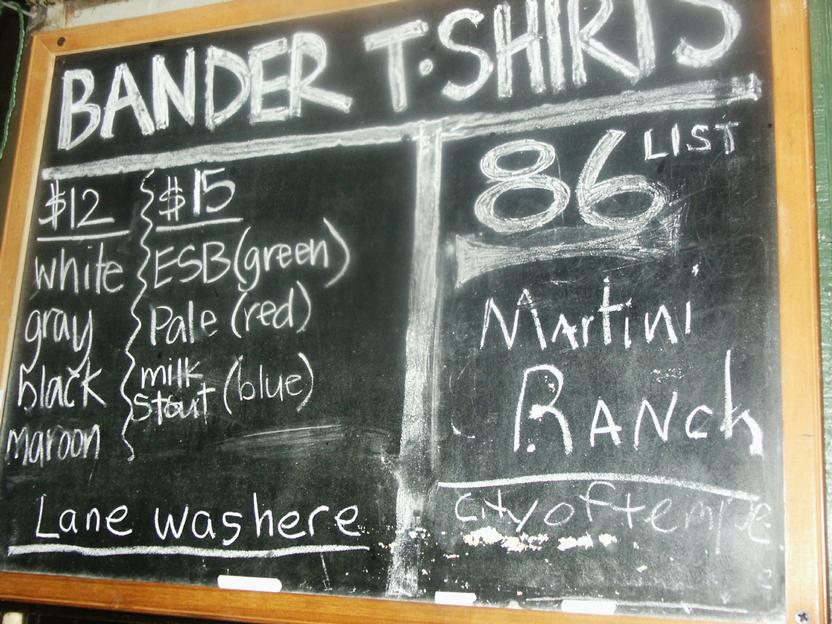 BANDER T-SHIRTS
$12
white
gray
black
maroon
$15
ESB (green)
Pale (red)
milk
stout (blue)
Lane was here
86 LIST
Martini
RANCh
city of tempe